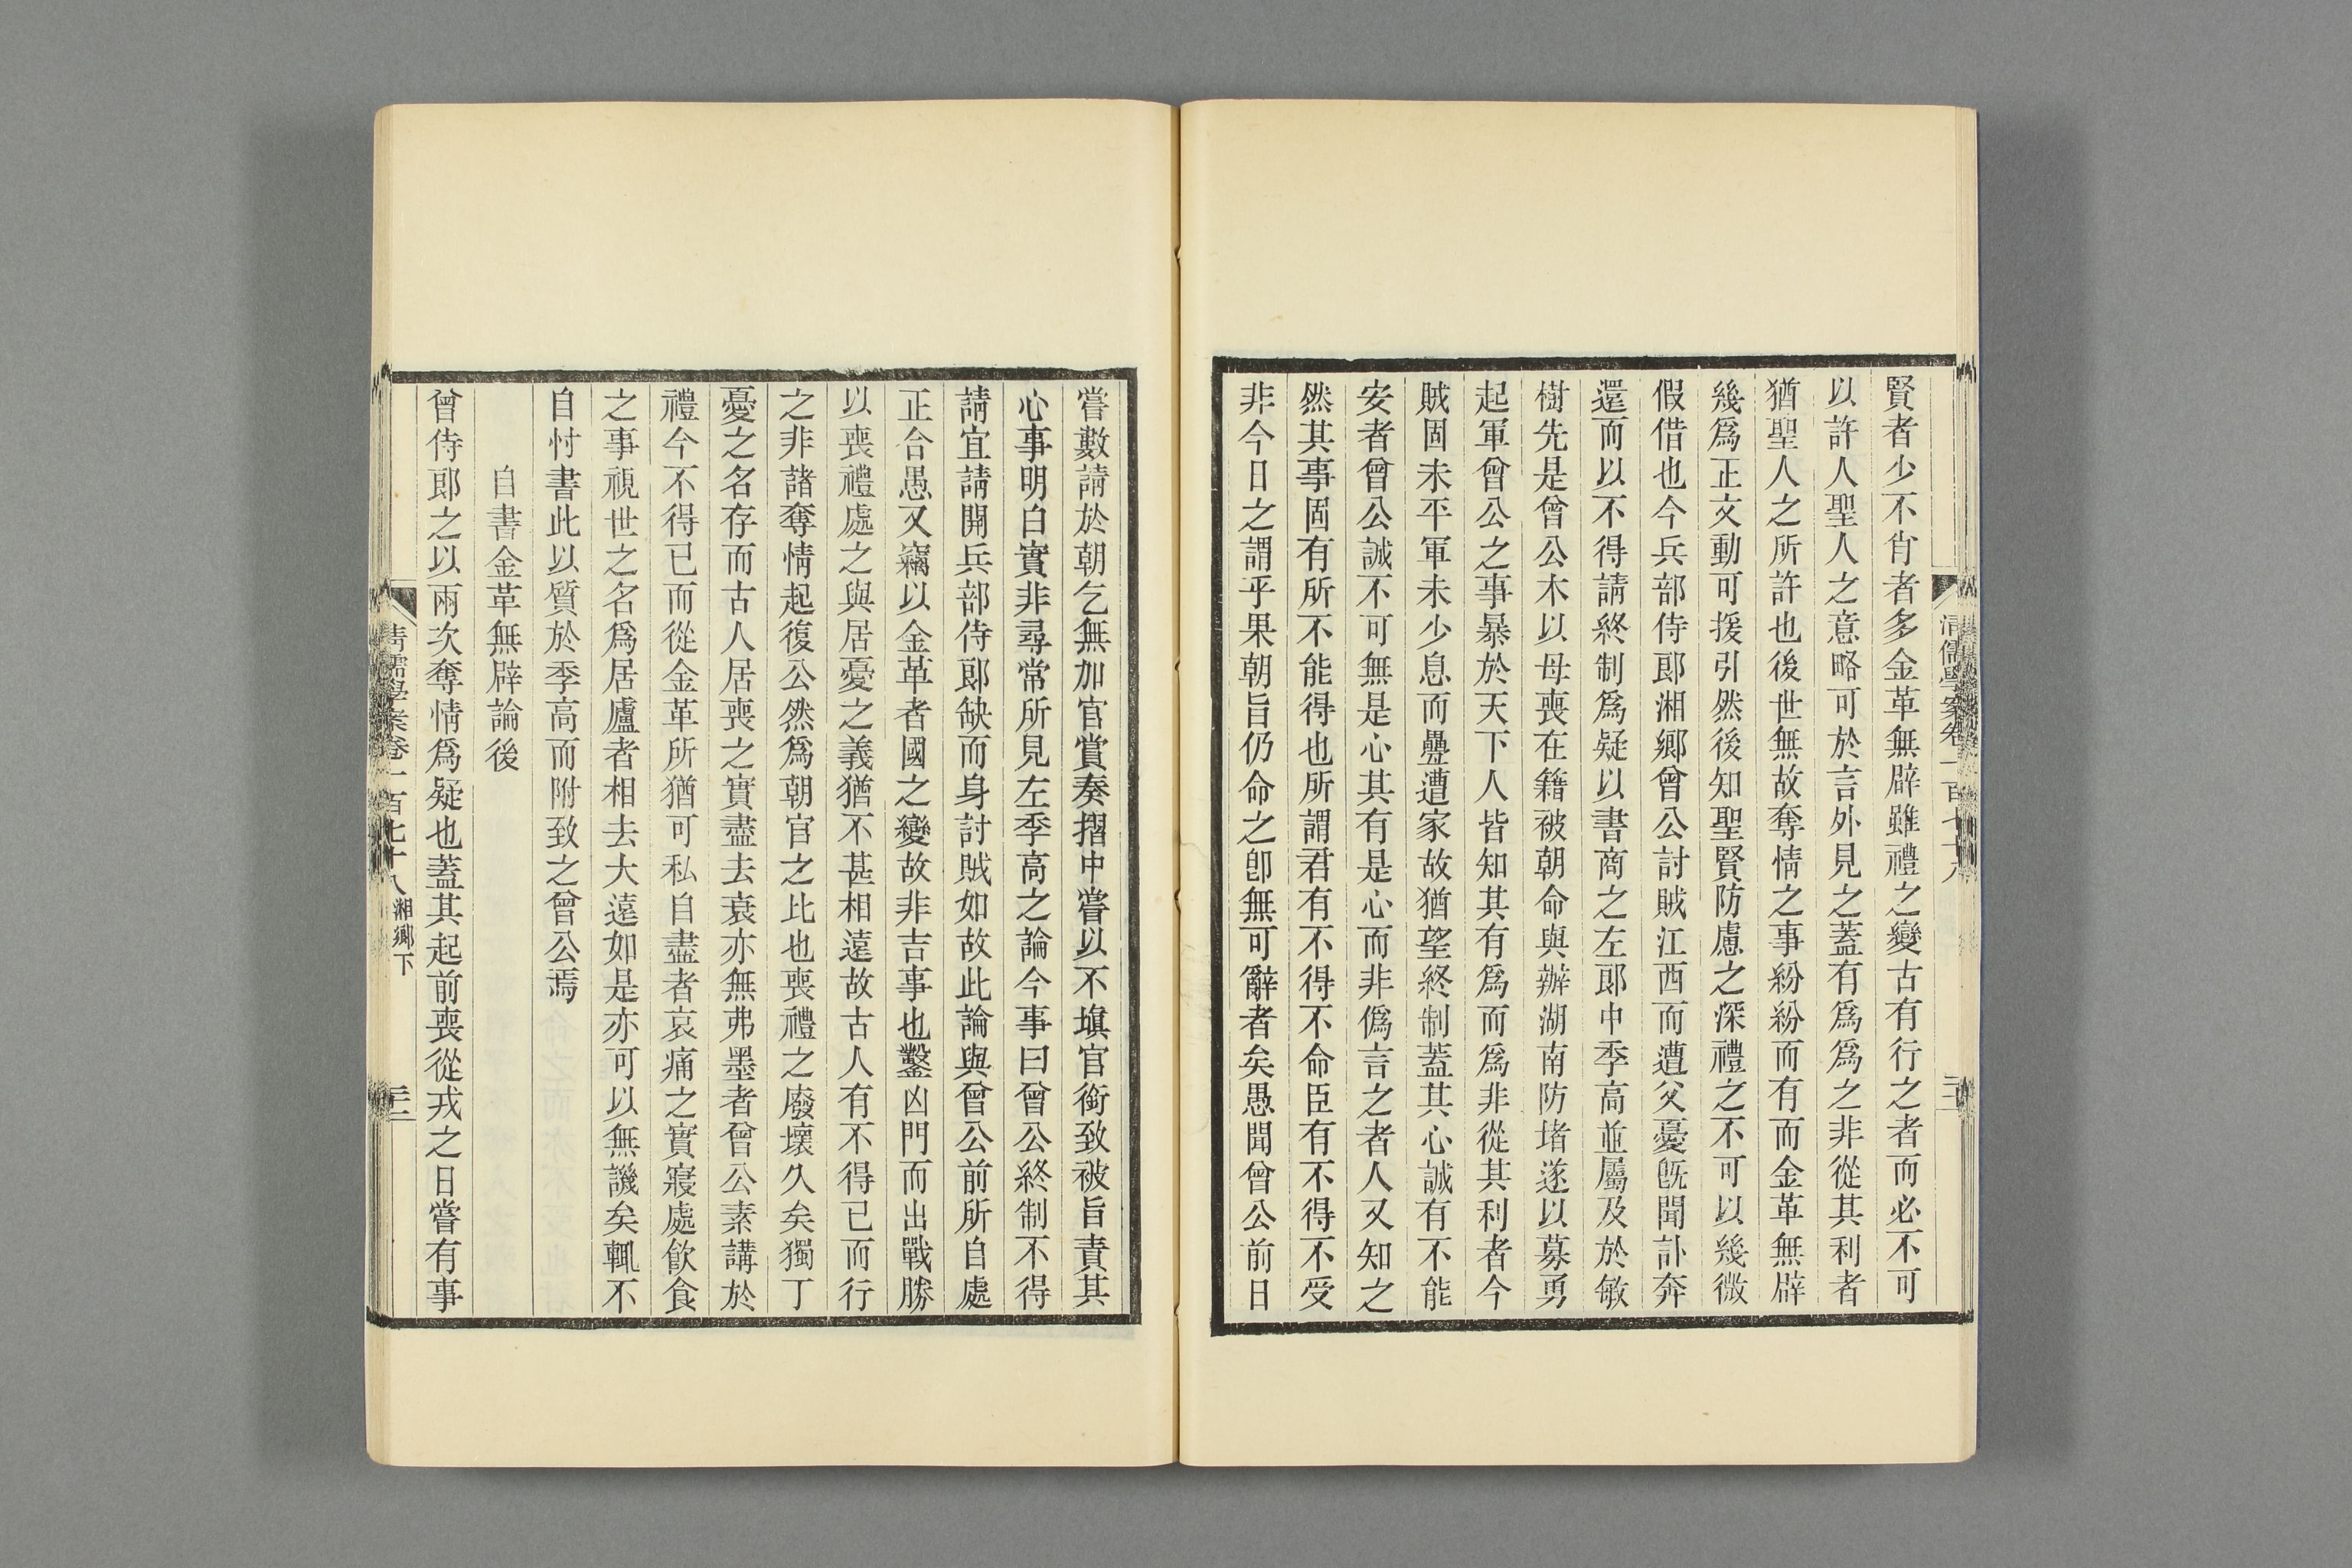 賢者少不肖者多金革無辟雖禮之變古有行之者而必不可
以許人聖人之意略可於言外見之蓋有爲爲之非從其利者
猶聖人之所許也後世無故奪情之事紛紛而有而金革無辟
幾爲正文動可援引然後知聖賢防慮之深禮之不可以幾微
假借也今兵部侍郎湘鄉曾公討賊江西而遭父憂旣聞訃奔
還而以不得請終制爲疑以書商之左郎中季高並屬及於敏
樹先是曾公木以母喪在籍被朝命與辦湖南防堵遂以募勇
起軍曾公之事暴於天下人皆知其有爲而爲非從其利者今
賊固未平軍未少息而疊遭家故猶望終制蓋其心誠有不能
安者曾公誠不可無是心其有是心而非僞言之者人又知之
然其事固有所不能得也所謂君有不得不命臣有不得不受
非今日之謂乎果朝旨仍命之卽無可辭者矣愚聞曾公前日
嘗數請於朝乞無加官賞奏摺中嘗以不塡官銜致被旨責其
心事明白實非尋常所見左季高之論今事曰曾公終制不得
請宜請開兵部侍郎缺而身討賊如故此論與曾公前所自處
正合愚又竊以金革者國之變故非吉事也鑿凶門而出戰勝
以喪禮處之與居憂之義猶不甚相遠故古人有不得已而行
之非諸奪情起復公然爲朝官之比也喪禮之廢壞久矣獨丁
憂之名存而古人居喪之實盡去衰亦無弗墨者曾公素講於
禮今不得已而從金革所猶可私自盡者哀痛之實寢處飮食
之事視世之名爲居廬者相去大遠如是亦可以無譏矣輒不
自忖書此以質於季高而附致之曾公焉
自書金革無辟論後
曾侍郎之以兩次奪情爲疑也蓋其起前喪從戎之日嘗有事
清儒學案卷一百七十八 湘鄉下